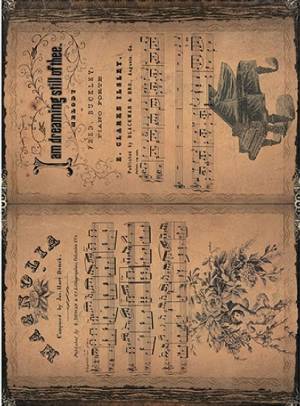 I am dreaming still of thee.
MELODY
FRED. BUCKLEY,
PIANO FORTE
E. CLARKE ILSLEY.
Published by BLACKMAR & BRO., Augusta, Ga.
MAGNOLIA
Composed by Jos. Hart Denck.